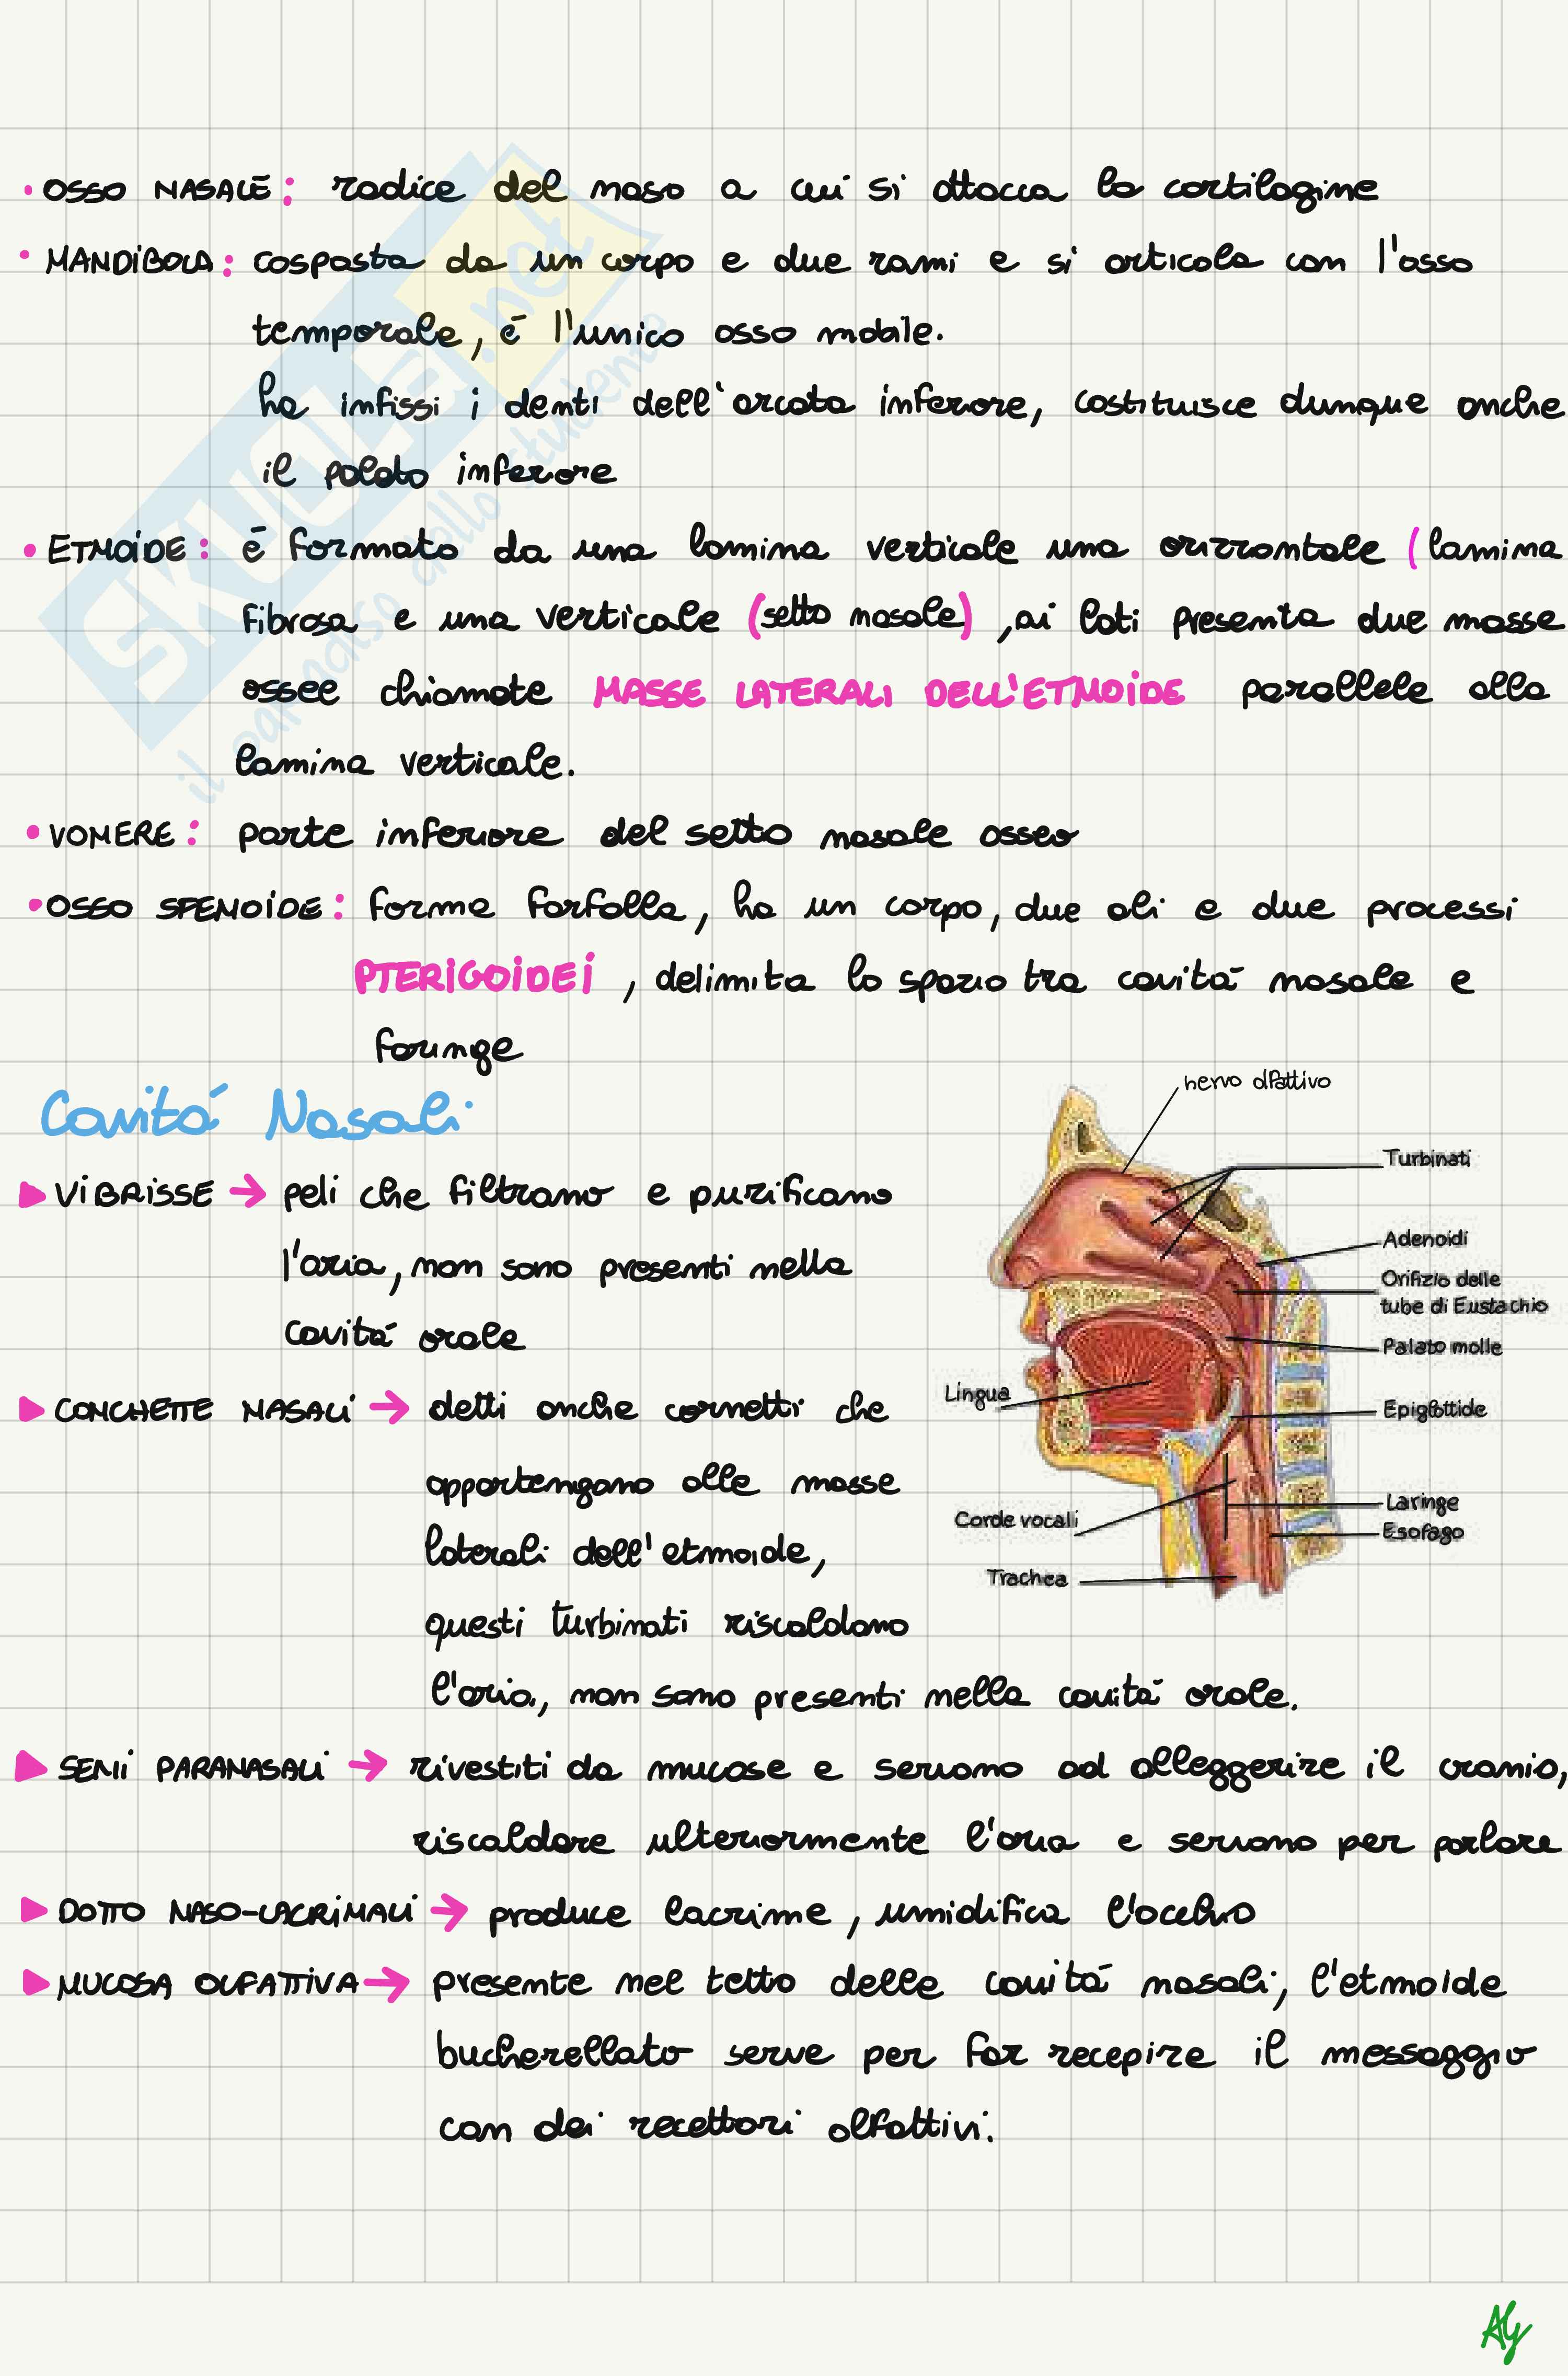 • OSSO NASALE: radice del naso a cui si attacca la cartilagine
• MANDIBOLA: cosposta da un corpo e due rami e si articola con l'osso
temporale, é l'unico osso mobile.
ha infissi i denti dell'arcata inferiore, costituisce dunque anche
il palato inferiore
• ETMOIDE: é formato da una lamina verticale una orizzontale (lamina
fibrosa e una verticale (setto nasale), ai lati presenta due masse
ossee chiamate MASSE LATERALI DELL'ETMOIDE parallele alla
lamina verticale.
• VOMERE: parte inferiore del setto nasale osseo
• OSSO SFENOIDE: forma farfalla, ha un corpo, due ali e due processi
PTERIGOIDEI, delimita lo spazio tra cavitá nasale e
faringe
Cavitá Nasali
▶ VIBRISSE → peli che filtrano e purificano
l'aria, non sono presenti nella
cavitá orale
▶ CONCHETTE NASALI → detti anche cornetti che
appartengano alle masse
laterali dell'etmoide,
questi turbinati riscaldano
l'aria, non sono presenti nella cavitá orale.
nervo olfattivo
Turbinati
Adenoidi
Orifizio delle
tube di Eustachio
Palato molle
Lingua
Epiglottide
Corde vocali
Laringe
Esofago
Trachea
▶ SENI PARANASALI → rivestiti da mucose e servono ad alleggerire il cranio,
riscaldare ulteriormente l'aria e servono per parlare
▶ DOTTO NASO-LACRIMALI → produce lacrime, umidifica l'occhio
▶ MUCOSA OLFATTIVA → presente nel tetto delle cavitá nasali, l'etmoide
bucherellato serve per far recepire il messaggio
con dei recettori olfattivi.
SKUOLA.net
il paradiso dello studente
Aly